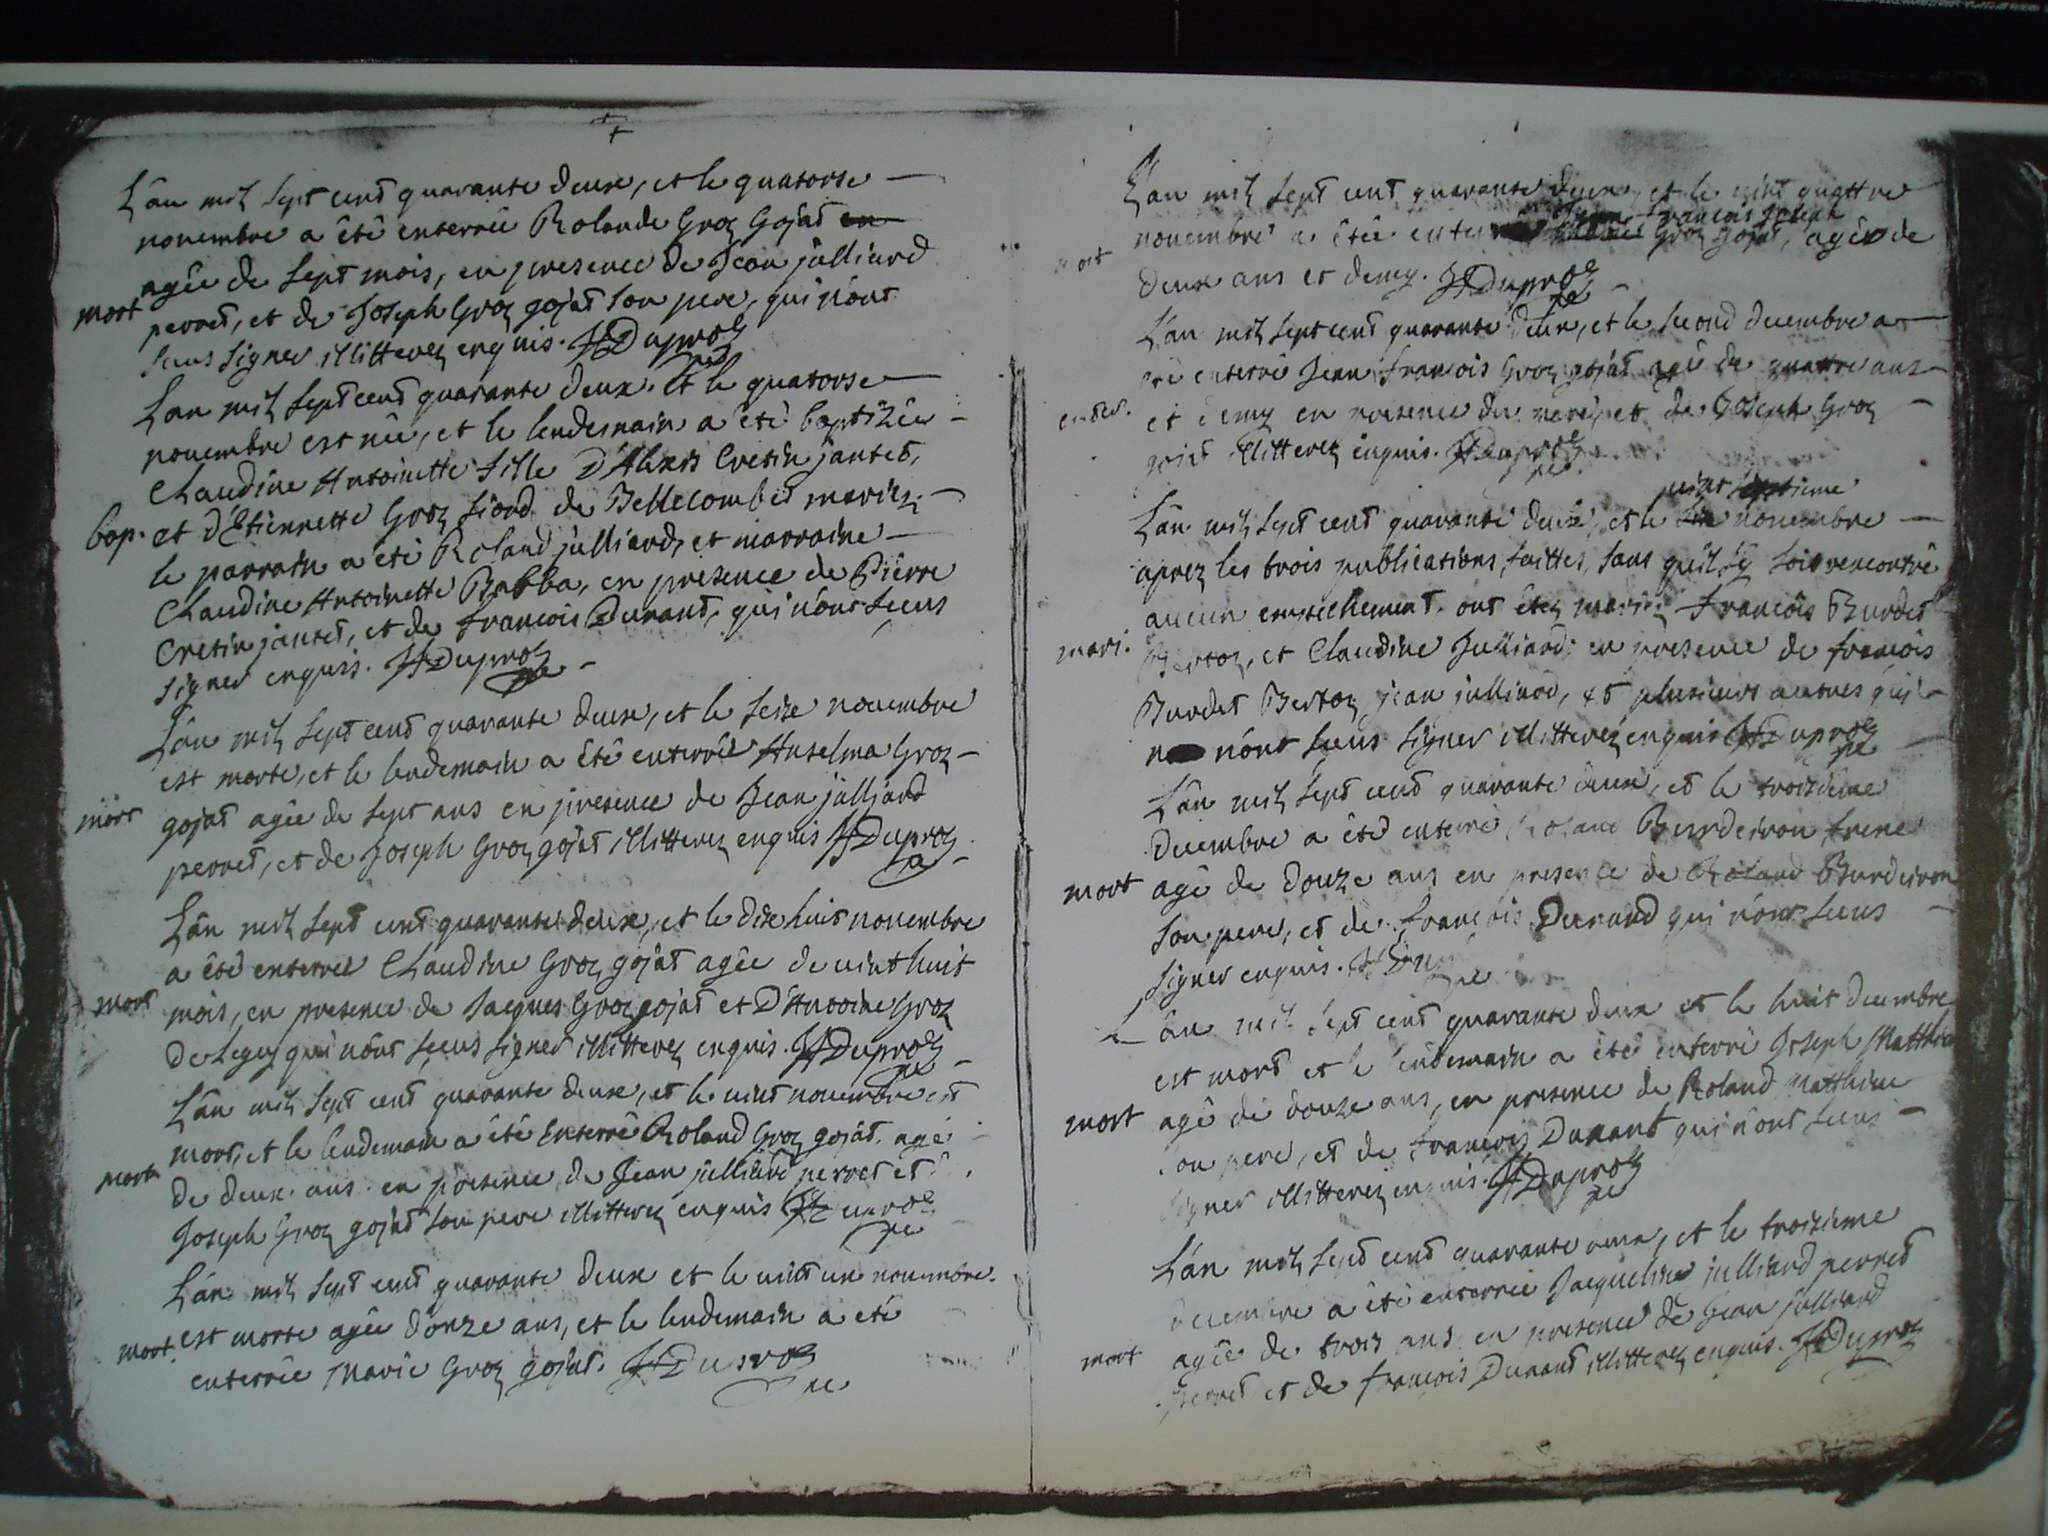 L'an mil sept cent quarante deux, et le quatorse
novembre a êtê enterrée Rolande Groz Gojat en
agêe de sept mois, en presence de Jean julliard
mort
perret, et de Joseph Groz gojat son pere, qui n'ont
sceus signer illitterez enquis. Duproz
L'an mil sept cent quarante deux. Et le quatorse
novembre est née, et le lendemain a été baptizée
Claudine Antoinette fille d'Alexis Cretin jantet,
bap. et d'Etiennette Groz fiord de Bellecombet mariez.
le parrain a été Roland julliard, et marraine
Claudine Antoinette Babba, en presence de Pierre
Cretin jantet, et de francois Durant, qui n'ont sceus
signer enquis. Duproz
L'an mil sept cent quarante deux, et le seize novembre
est morte, et le lendemain a êtê enterrée Anselma Groz
mort
gojat agêe de sept ans en presence de Jean julliard
perret, et de Joseph Groz gojat illitterez enquis Duproz
L'an mil sept cent quarante deux, et le dixhuit novembre
a êtê enterree Claudine Groz gojat agêe de vinthuit
mort mois, en presence de Jacques Groz gojat et D'Antoine Groz
De Leguy qui n'ont sceus signer illitterez enquis. Duproz
L'an mil sept cent quarante deux, et le vint novembre est
mort, et le lendemain a êtê enterrê Roland Groz gojat, agé
mort
de deux ans en presence de Jean julliard perret et
Joseph Groz gojat son pere illitterez enquis Duproz
L'an mil sept cent quarante deux et le vint un novembre
mort. est morte agêe d'onze ans, et le lendemain a été
enterrêe Marie Groz gojat. Duproz
L'an mil sept cent quarante deux, et le vint quattre
francois joseph
novembre a êtêe Groz gojat, agê de
mort
deux ans et demy. Duproz
L'an mil sept cent quarante deux, et le second decembre a
enterré Jean francois Groz gojat agê de quattre ans
et demy en presence du pere, et de Joseph Groz
gojat illitterez enquis. Duproz
vint septieme
L'an mil sept cent quarante deux, et le novembre
aprez les trois publications faittes, sans qu'il s'y soit rencontrê
aucun empechement ont étez mariez francois Burdet
mari.
Bertoz, et Claudine Julliard en presence de francois
Burdet Bertoz, jean julliard, et plusieurs autres qui
n'ont sceus signer illitterez enquis Duproz
L'an mil sept cent quarante deux, et le troizieme
decembre a êtê enterré Roland Burdeiron
mort agê de douze ans en presence de Roland Burdeiron
son pere, et de francois Durand qui n'ont sceus
signer enquis.
L'an mil sept cent quarante deux et le huit decembre
est mort et le lendemain a été enterré Joseph Matthieu
mort agê de douze ans, en presence de Roland Matthieu
son pere, et de francois Durant qui n'ont sceus
signer illitterez enquis. Duproz
L'an mil sept cent quarante deux, et le troizieme
decembre a êtê enterrée Jacqueline julliard perret
mort agêe de trois ans en presence de Jean julliard
perret et de francois Durant illitterez enquis. Duproz